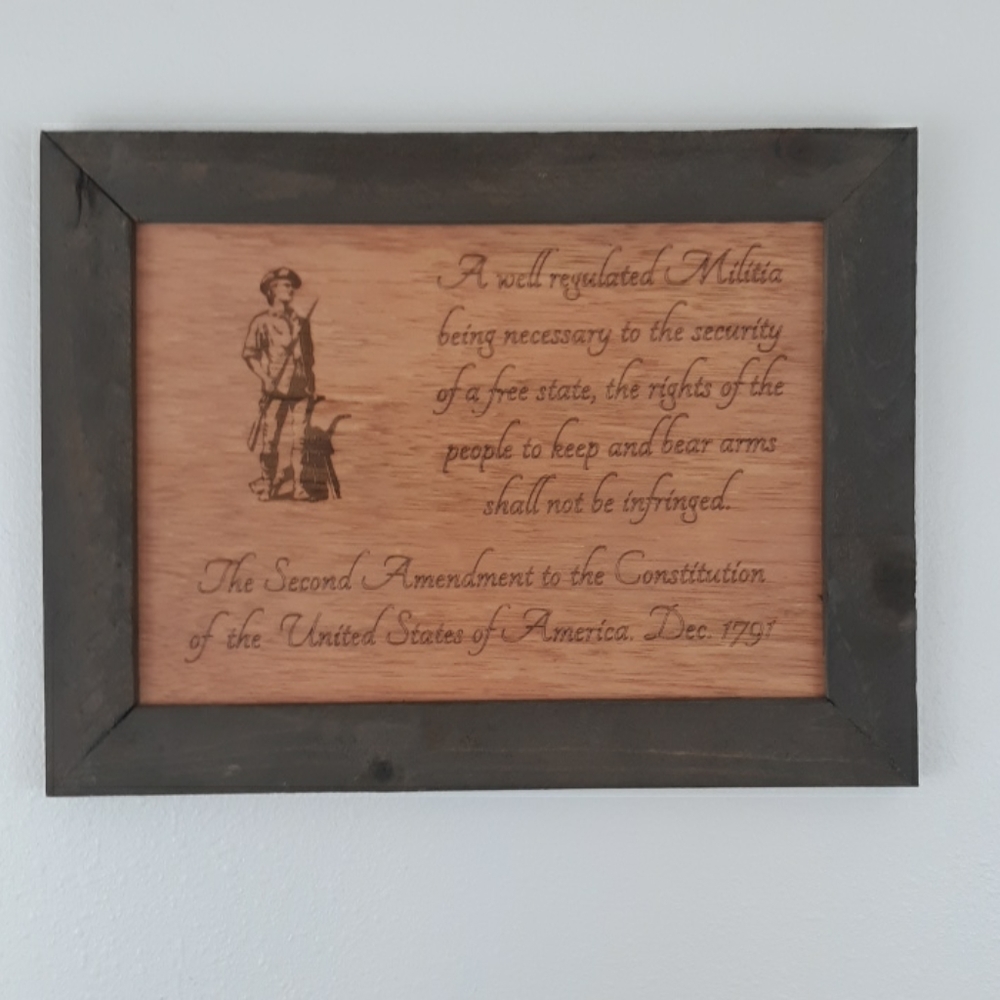 A well regulated Militia
being necessary to the security
of a free state, the rights of the
people to keep and bear arms
shall not be infringed.
The Second Amendment to the Constitution
of the United States of America. Dec. 1791